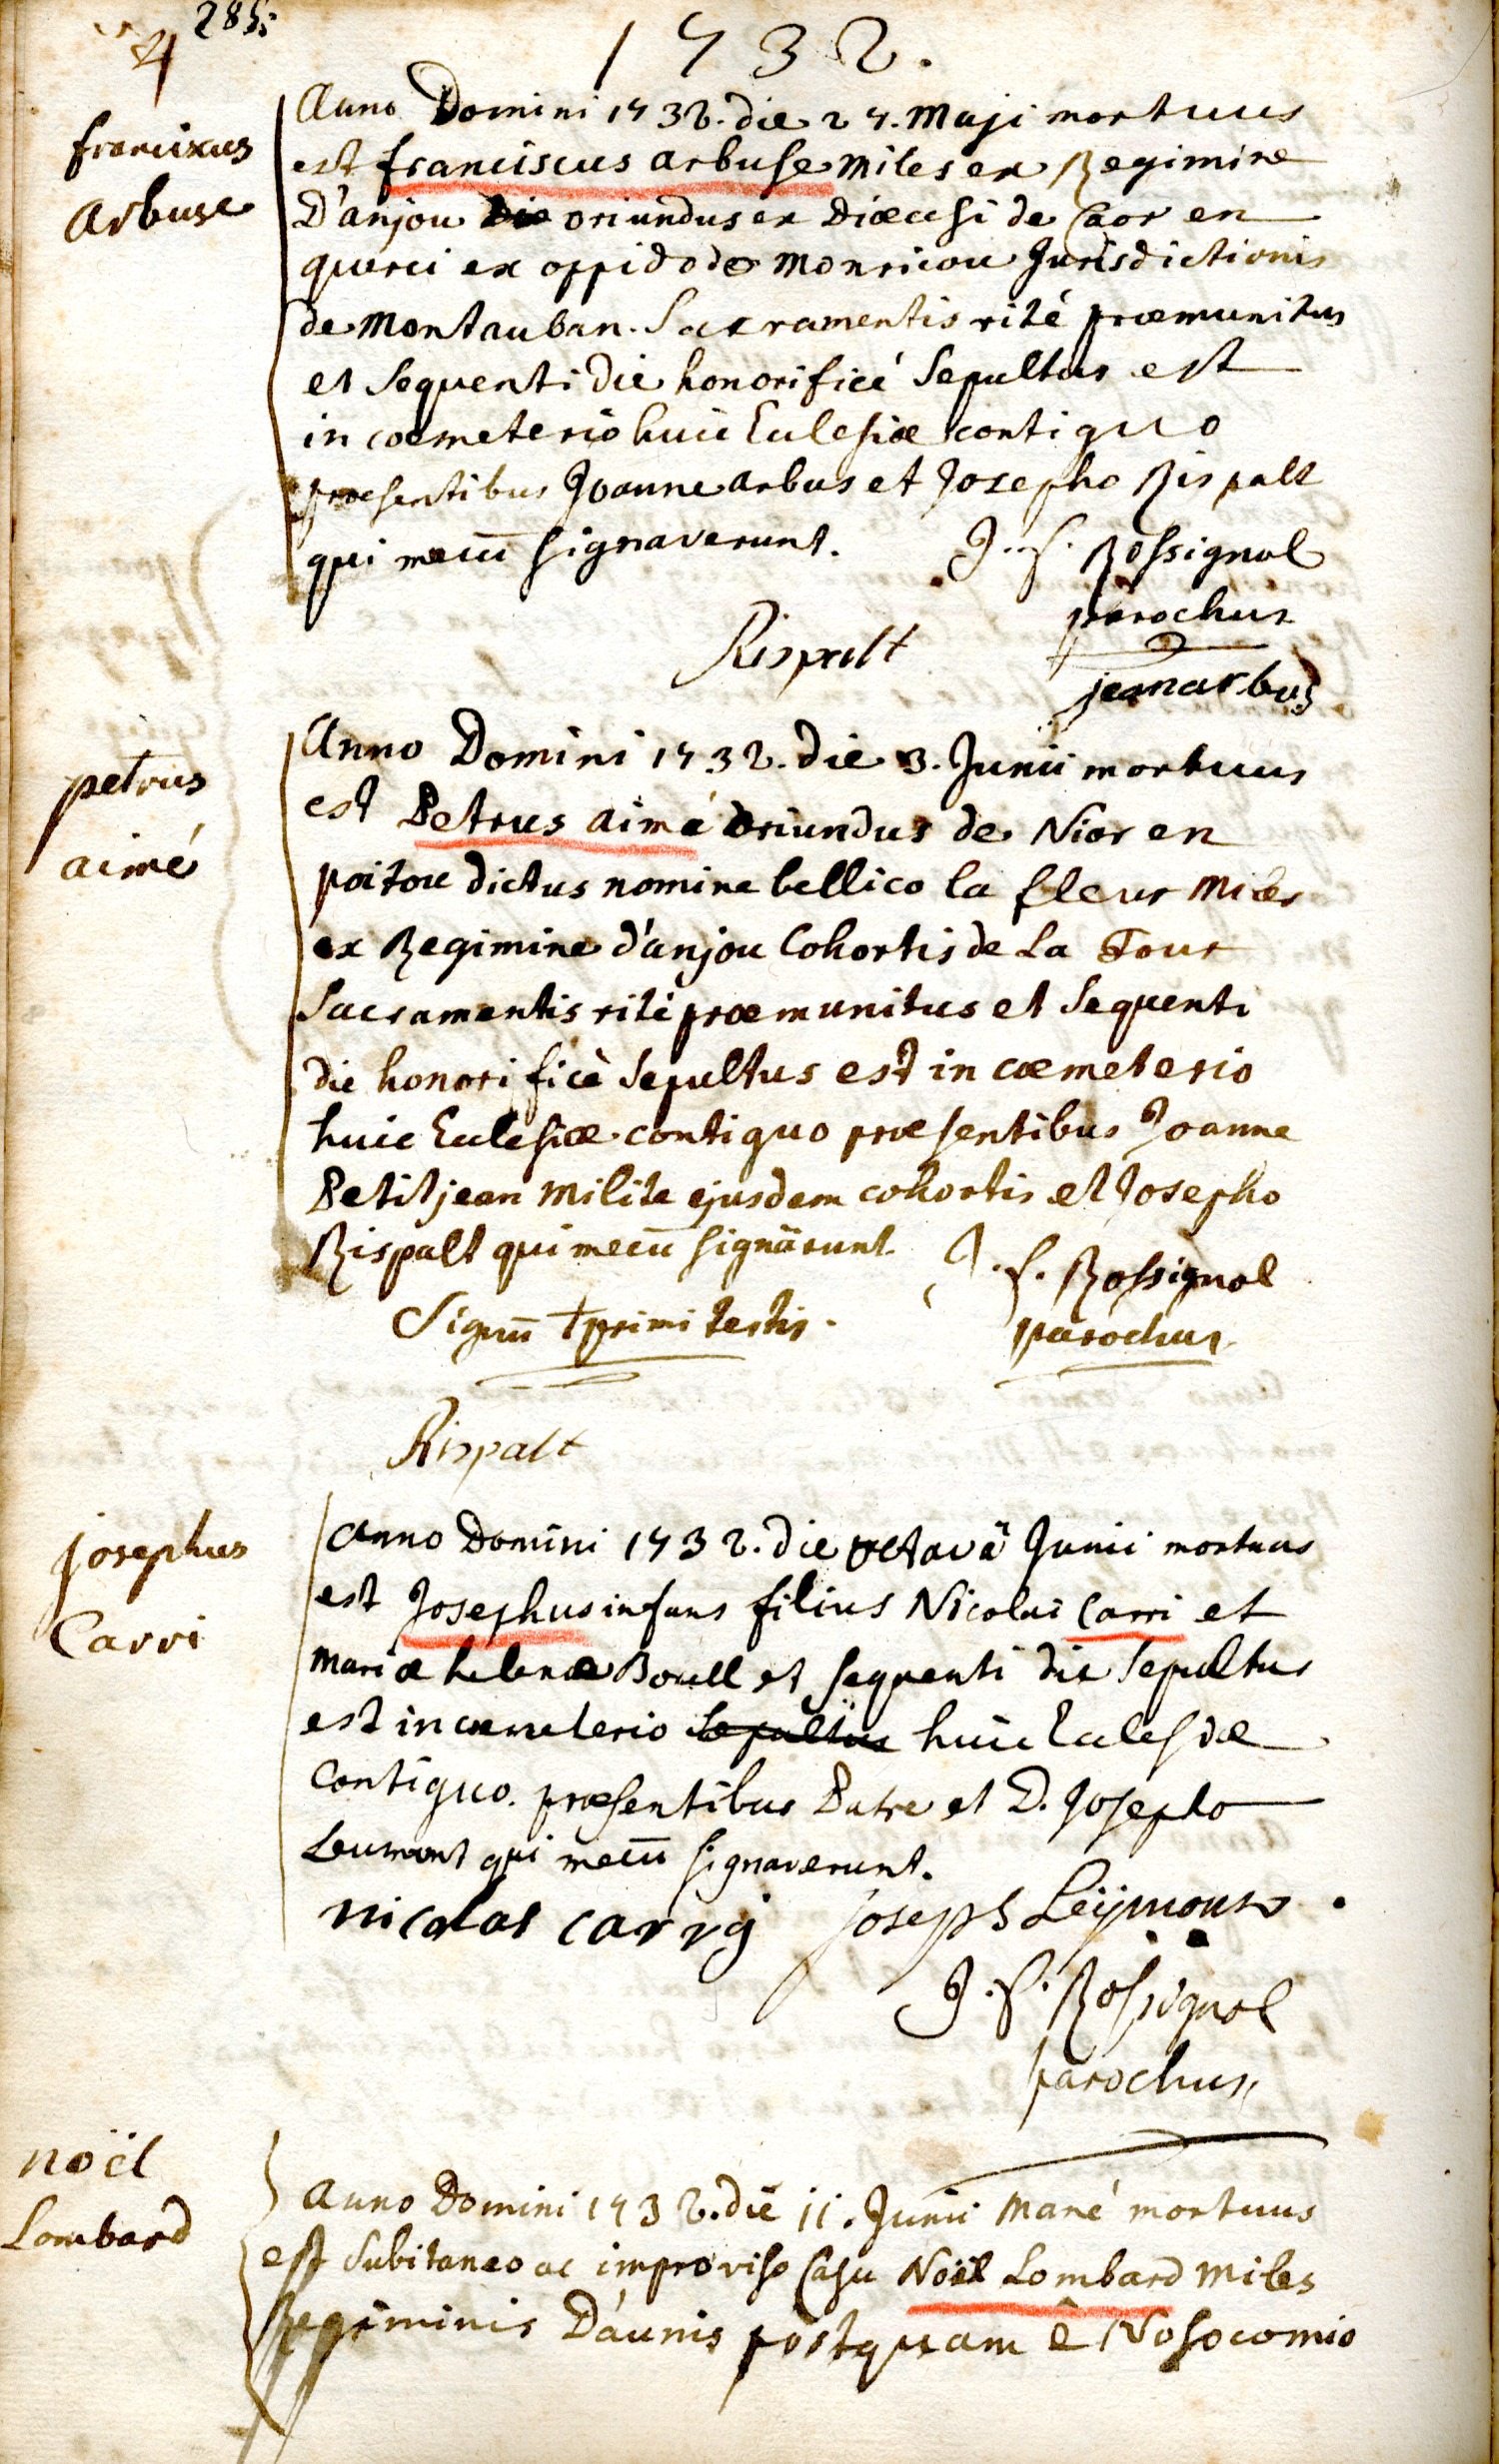 285
1732.
franciscus
arbuse
Anno Domini 1732. die 27. Maji mortuus
est franciscus arbuse miles ex Regimine
D'anjou oriundus ex Diœcesi de Caor en
querci ex oppido de Monricou Jurisdictionis
de Montauban. Sacramentis rité præmunitus
et sequenti die honorificé Sepultus est
in cœmeterio huic Eclesiæ contiguo
præsentibus Joanne arbus et Josepho Rispalt
qui mecū signaverunt. J. f. Rossignol
parochus
Rispalt
jean arbus
petrus
aimé
Anno Domini 1732. die 3. Junii mortuus
est Petrus aimé oriundus de Nior en
poitou dictus nomine bellico la fleur Miles
ex Regimine d'anjou Cohortis de La Tour
Sacramentis rité præmunitus et Sequenti
die honorificè Sepultus est in cœmeterio
huic Eclesiæ contiguo præsentibus Joanne
Petitjean Milite ejusdem cohortis et Josepho
Rispalt qui mecū signārunt. J. f. Rossignol
Signū + primi testis. parochus
Rispalt
josephus
Carri
Anno Domini 1732. die octavâ Junii mortuus
est Josephus infans filius Nicolai Carri et
Mariæ helenæ Boull et sequenti die Sepultus
est in cœmeterio Sepultus huic Eclesiæ
Contiguo. præsentibus Patre et D. Josepho
Leumont qui mecū signaverunt.
nicolas carrÿ joseph Leÿmont
J. f. Rossignol
parochus
noël
Lombard
Anno Domini 1732. die 11. Junii Mané mortuus
est Subitaneo ac improviso Casu Noël Lombard Miles
Regiminis D'aunis postquam ê Nosocomio